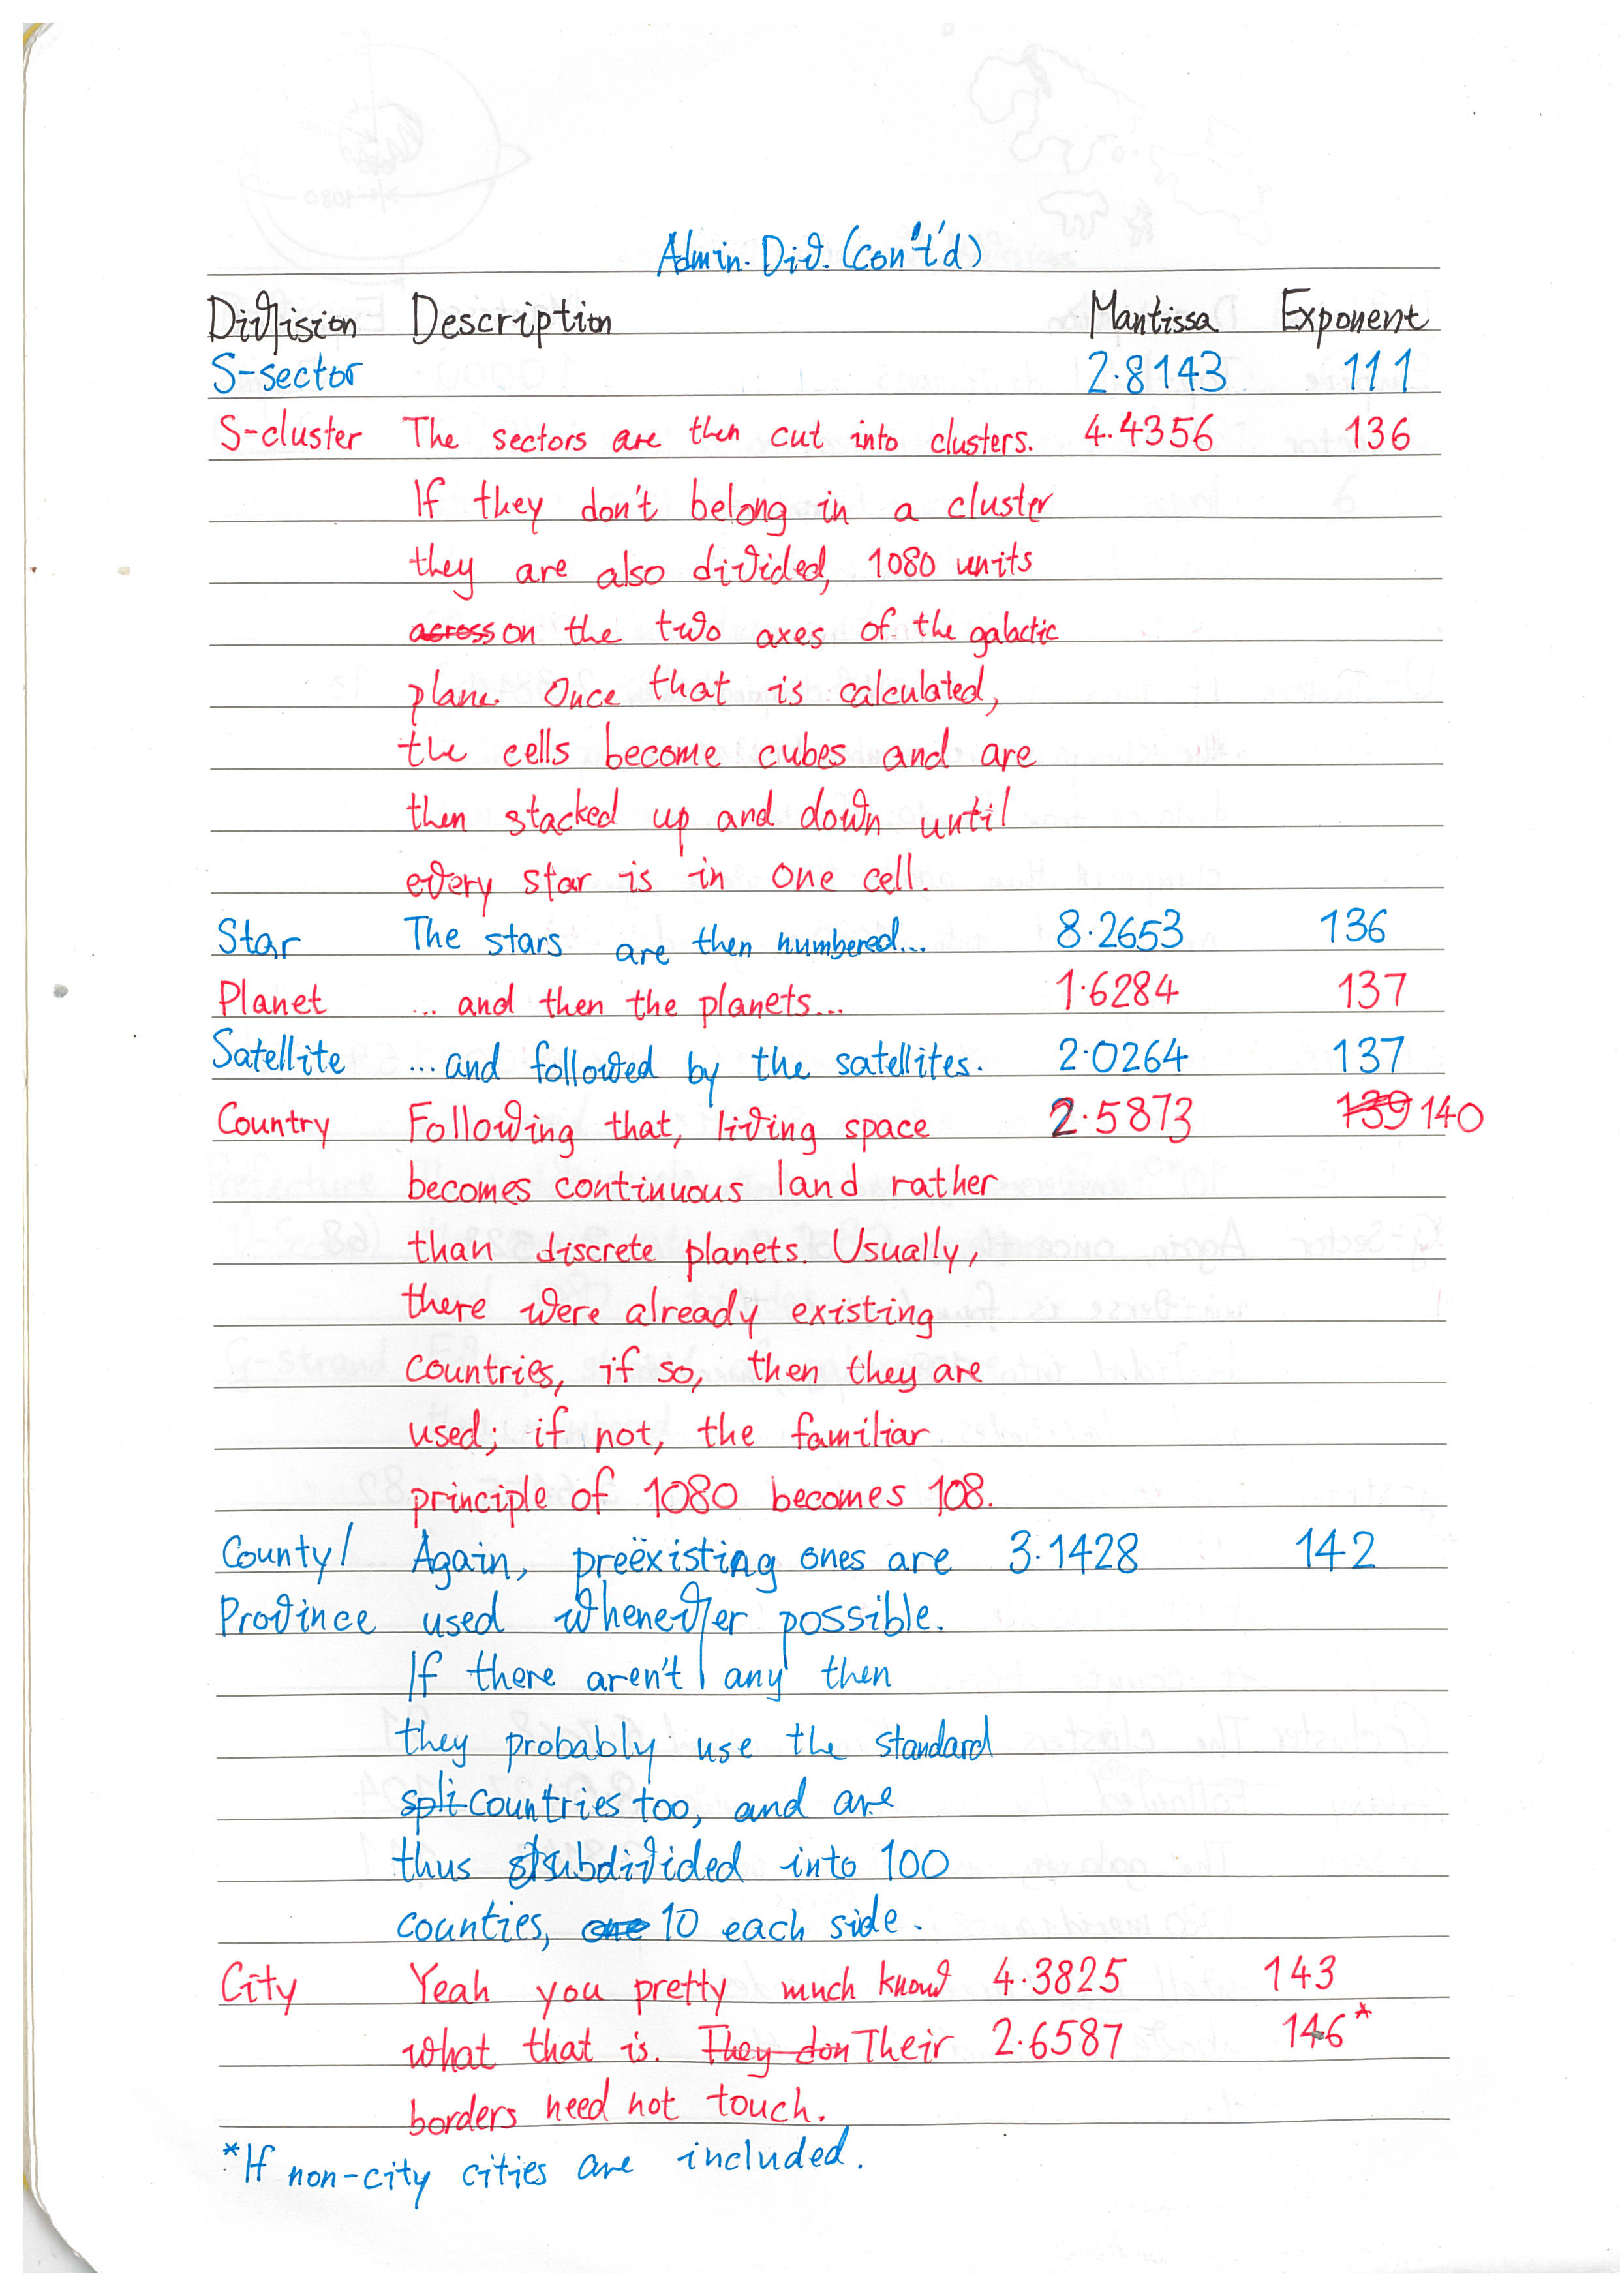 Admin. Div. (con't'd)
Division Description Mantissa Exponent
S-sector 2.8143 111
S-cluster The sectors are then cut into clusters. 4.4356 136
If they don't belong in a cluster
they are also divided, 1080 units
across on the two axes of the galactic
plane. Once that is calculated,
the cells become cubes and are
then stacked up and down until
every star is in one cell.
Star The stars are then numbered... 8.2653 136
Planet ... and then the planets... 1.6284 137
Satellite ... and followed by the satellites. 2.0264 137
Country Following that, living space 2.5873 139 140
becomes continuous land rather
than discrete planets. Usually,
there were already existing
countries, if so, then they are
used; if not, the familiar
principle of 1080 becomes 108.
County/ Again, preëxisting ones are 3.1428 142
Province used whenever possible.
If there aren't any then
they probably use the standard
spli countries too, and are
thus subdivided into 100
counties, one 10 each side.
City Yeah you pretty much know 4.3825 143
what that is. They don Their 2.6587 146*
borders need not touch.
*If non-city cities are included.